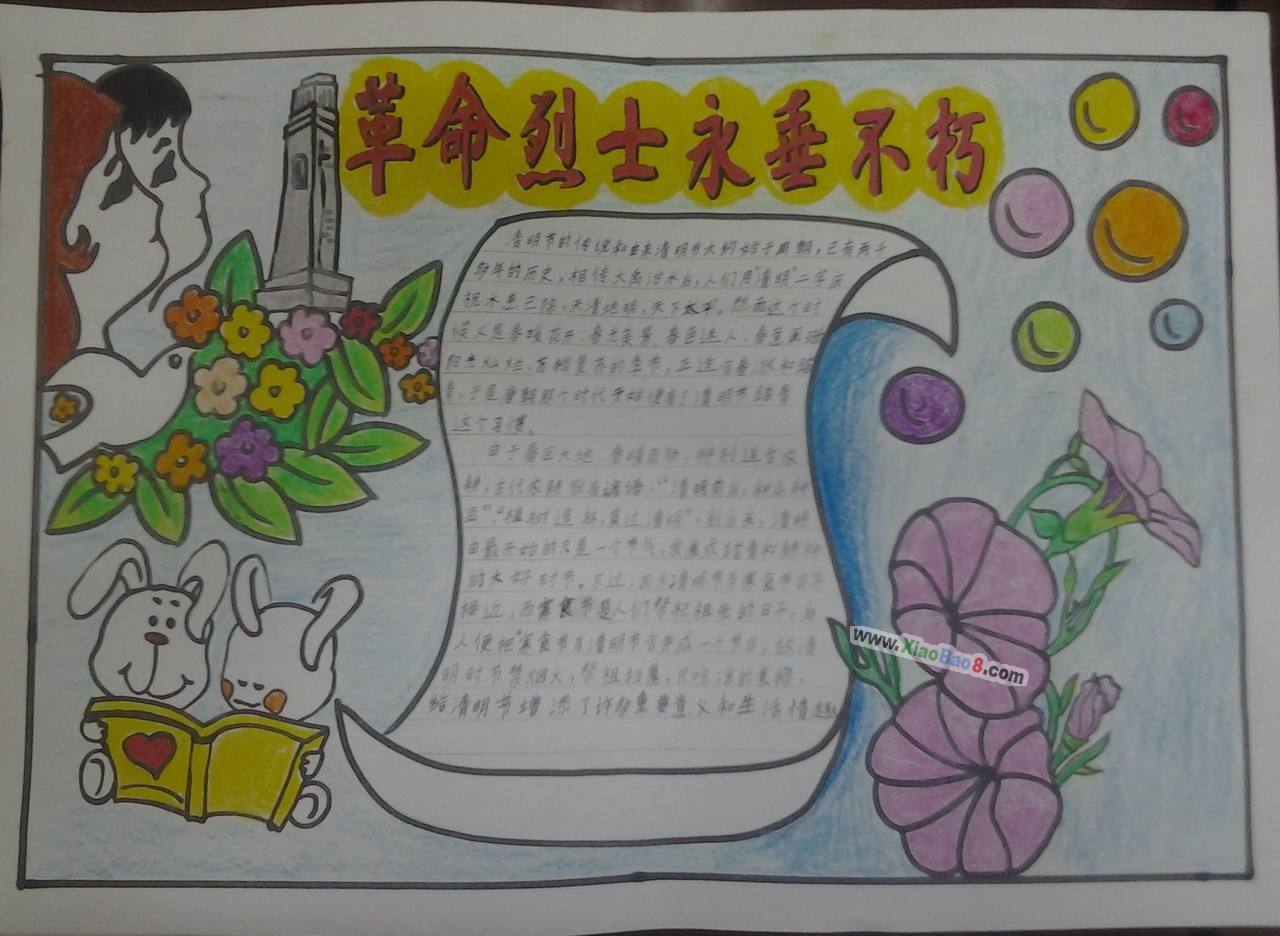 革命烈士永垂不朽
清明节的传说和由来清明节大约始于周朝，已有两千
多年的历史。相传大禹治水后，人们用"清明"二字庆
祝水患已除，天清地明，天下太平。然而这个时
候又是春暖花开，春光美景，春色迷人，春意
阳光灿烂，百物复苏的季节，正适合春游和踏
青，于是唐朝那个时代开始便有了清明节踏青
这个习惯。
由于春回大地，春暖，特别适合农
耕，古代农耕谚语："清明前后，种瓜种
豆"，"植树造林，莫过清明"。到后来，清明
由最开始的只是一个节气，发展成踏青和耕种
的大好时节。不过，因为清明节与寒食节日子
接近，而寒食节是人们祭祀祖先的日子，后
人便把寒食节与清明节合并成一个节日，故清
明时节禁烟火，祭祖扫墓，只吃凉的
给清明节增添了许多重要意义和生活情趣
www.XiaoBao8.com